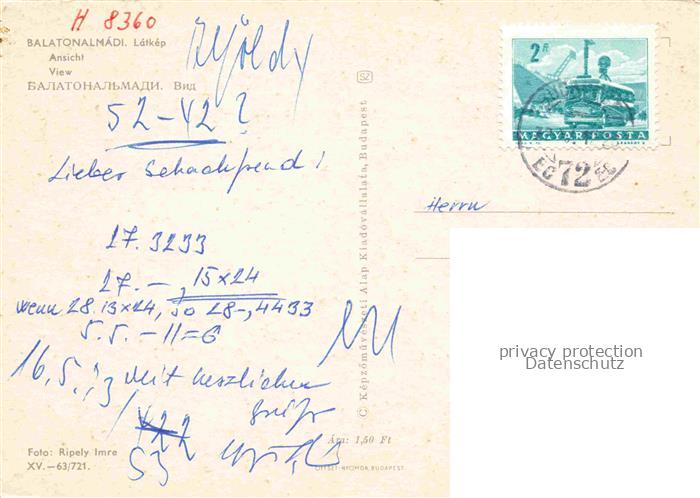 H 8360
BALATONALMÁDI. Látkép
Ansicht
View
БАЛАТОНАЛЬМАДИ. Вид
52-42?
Lieber Schachfreund!
27. 3233
27. – , 15x24
wenn 28. 13x24, so 28-, 4433
5.5. – 11=6
16.5. ; 3 mit herzlichen
53
Foto: Ripely Imre
XV.—63/721.
SZ
© Képzőművészeti Alap Kiadóvállalata, Budapest
Ára: 1,50 Ft
OFFSET-NYOMDA, BUDAPEST
2 Ft
MAGYAR POSTA
72
Herrn
privacy protection
Datenschutz